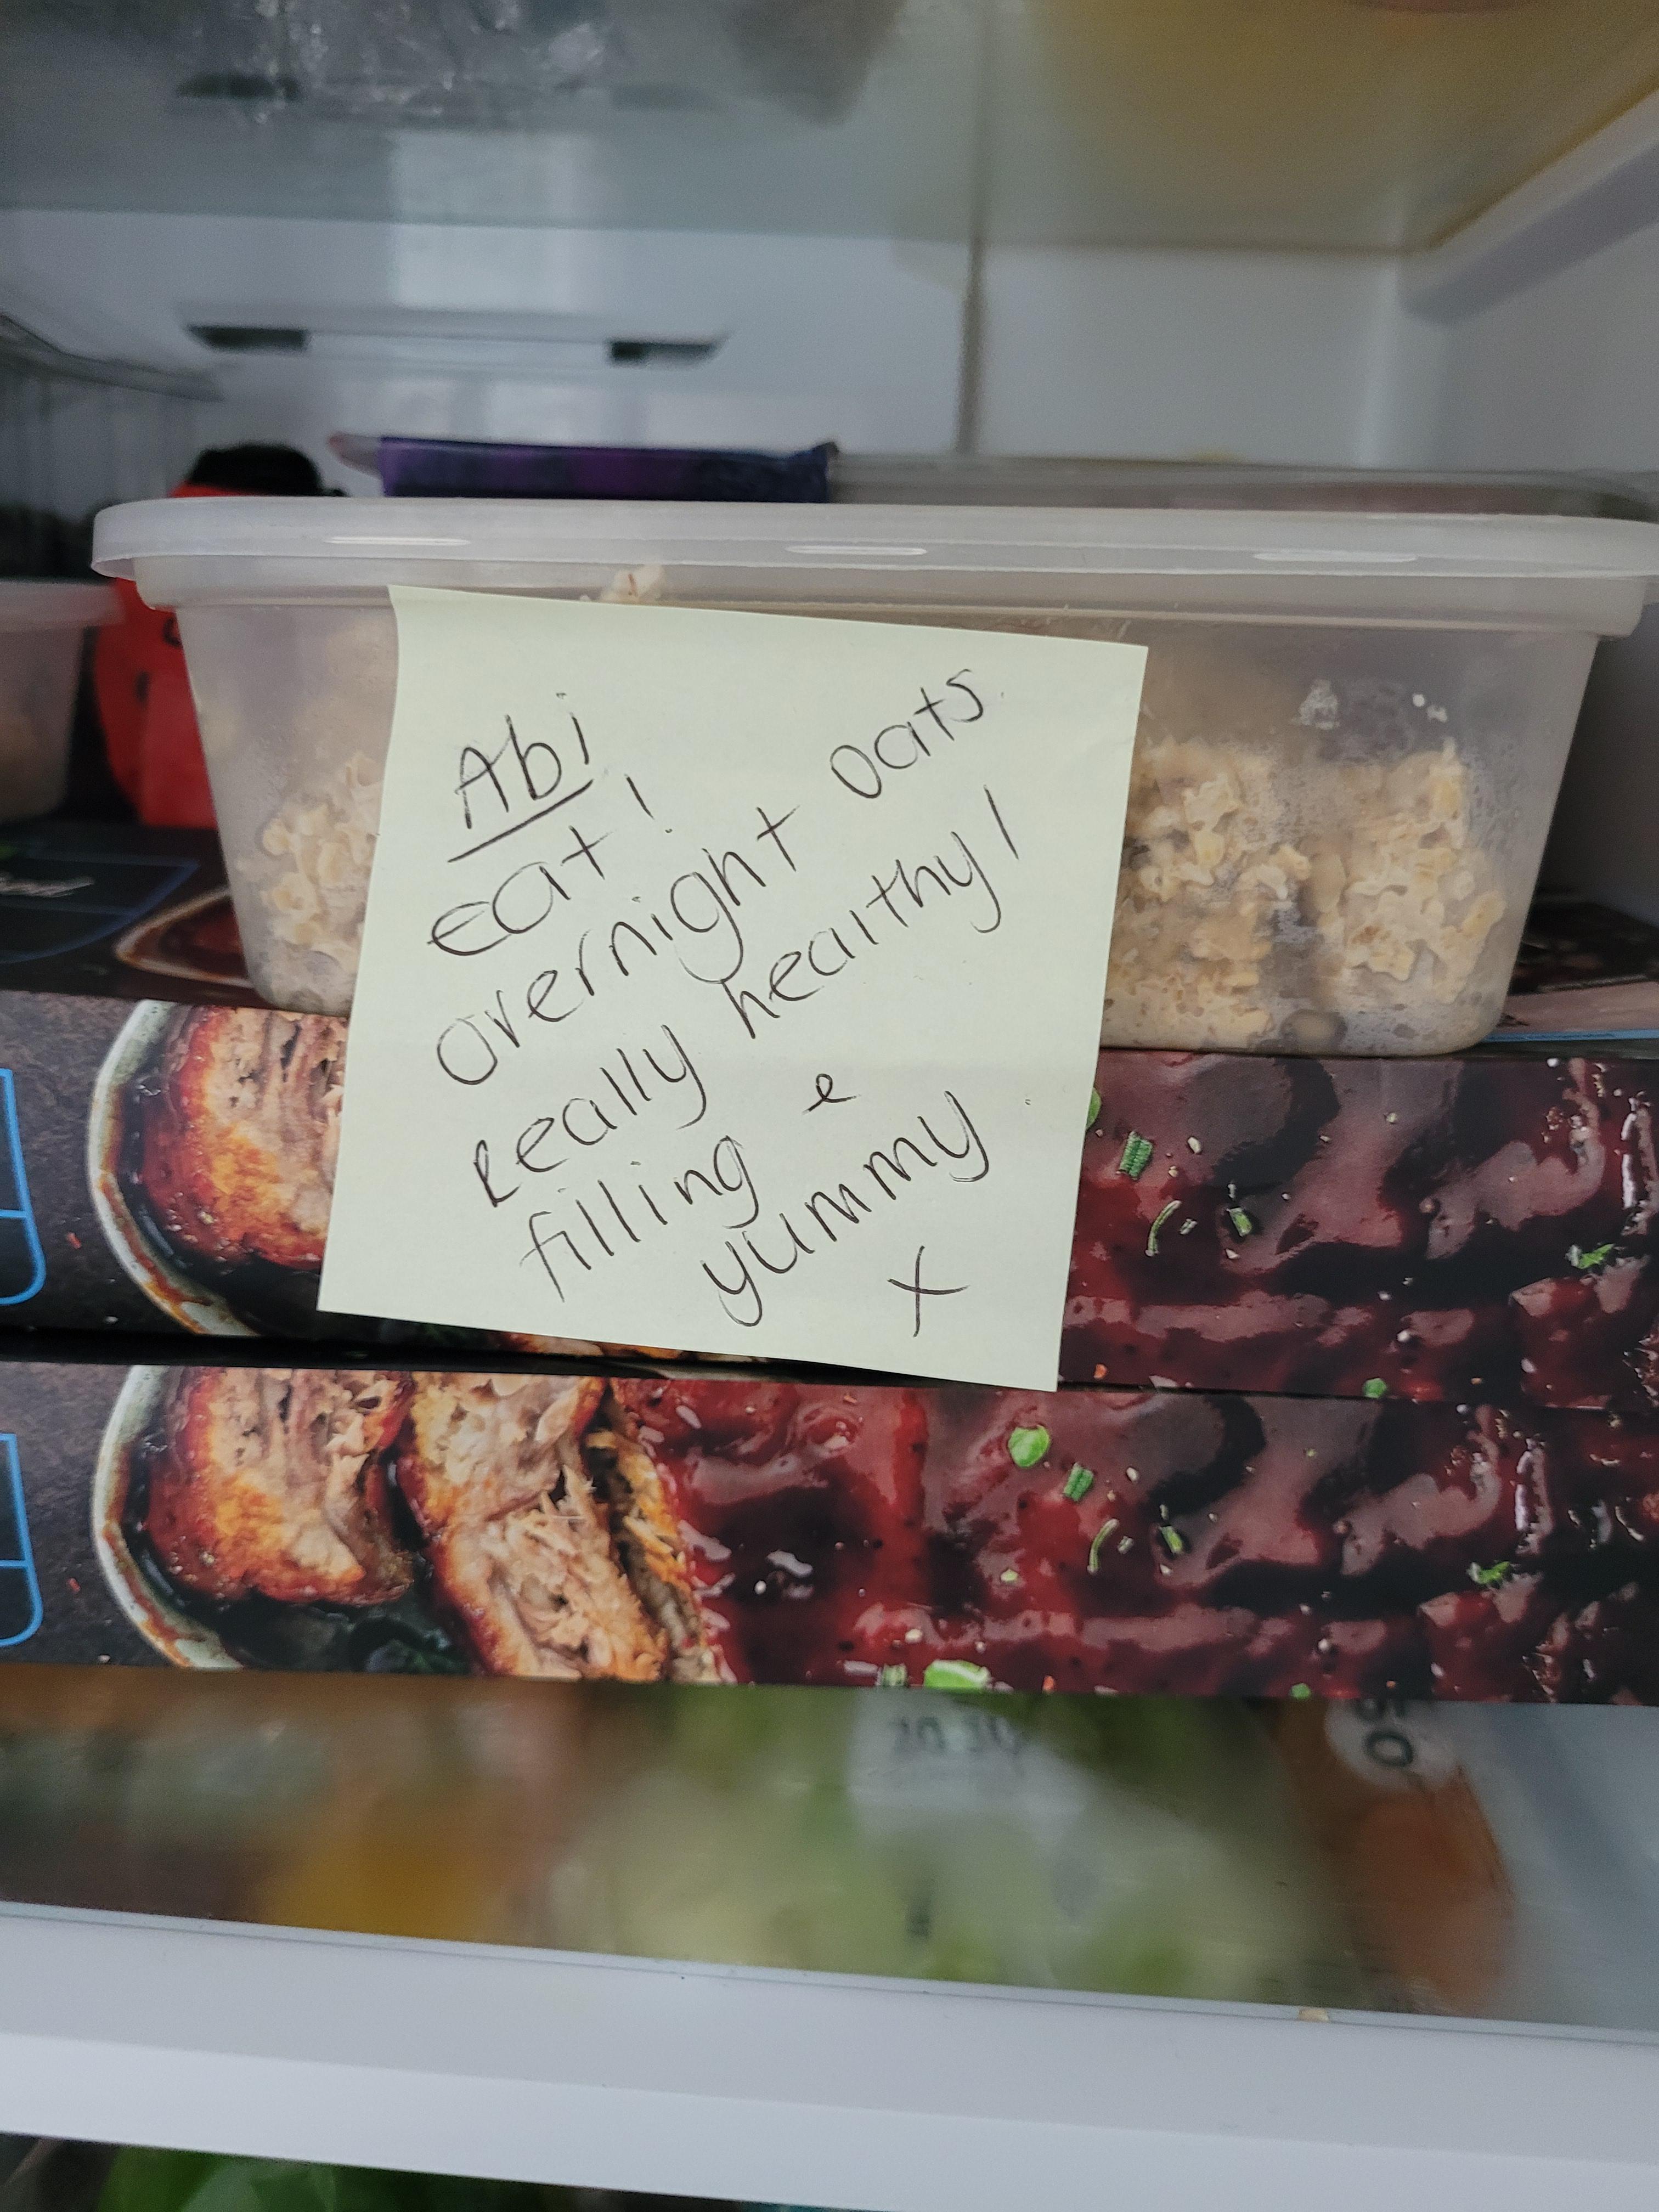 Abi
eat!
overnight oats
Really healthy!
filling &
yummy
x
20
50